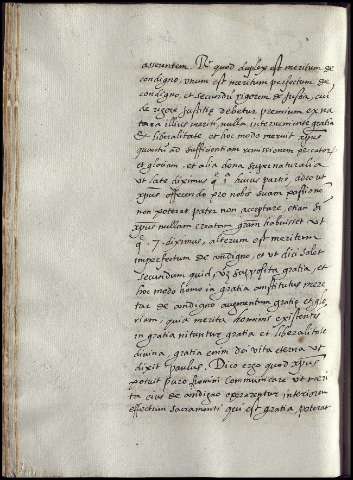 asserentem. Rñ quod duplex est meritum de
condigno, unum est meritum perfectum de
condigno, et secundũ rigorem de justitia, cui
de rigore justitiæ debetur premium ex na
tura illius meriti, nulla interveniente gratia
et liberalitate et hoc modo meruit xp̃us
quantũ ad sufficientiam remissionem peccatorũ
et gloriam, et alia dona supernaturalia
ut late diximus q. a. huius partis, adeo ut
xp̃us offerendo pro nobis suam passionẽ
non poterat pater non acceptare, etiam si
xp̃us nullam creatam gratiam habuisset ut
q. 7. diximus, alterum est meritum
imperfectum de condigno, et ut dici solet
secundum quid, vz supposita gratia, et
hoc modo homo in gratia constitutus mere
tur de condigno augmentum gratiæ et glo
riam, quia merita hominis existentis
in gratia nituntur gratia et liberalitate
divina, gratia enim dei vita eterna ut
dixit Paulus. Dico ergo quod xp̃us
potuit puro homini communicare ut meri
ta eius de condigno operarentur interiorem
effectum sacramenti qui est gratia, poterat